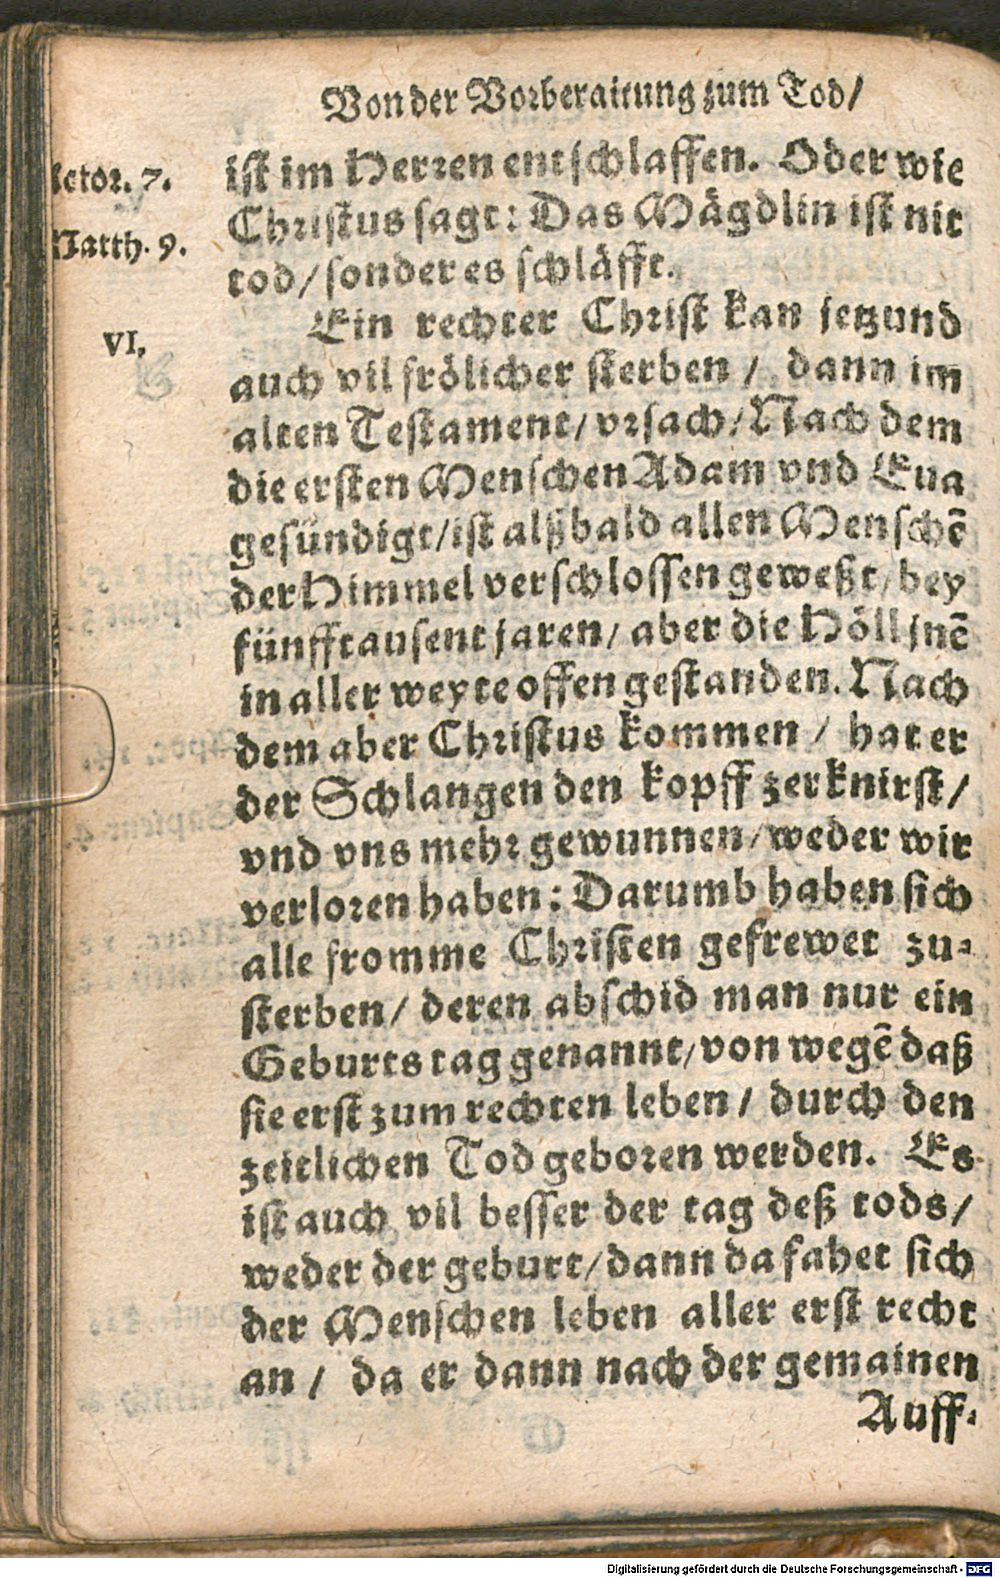 Von der Vorberaitung zum Tod/
ist im Herren entschlaffen. Oder wie
Actor. 7.
Christus sagt: Das Mägdlin ist nit
Matth. 9.
tod/ sonder es schläfft.
VI.
Ein rechter Christ kan jetzund
auch vil frölicher sterben / dann im
alten Testament/ vrsach/ Nach dem
die ersten Menschen Adam vnd Eua
gesündigt/ ist alßbald allen Menschē
der Himmel verschlossen geweßt/ bey
fünfftausent jaren/ aber die Höll jnē
in aller weyte offen gestanden. Nach
dem aber Christus kommen / hat er
der Schlangen den kopff zerknirst/
vnd vns mehr gewunnen/ weder wir
verloren haben: Darumb haben sich
alle fromme Christen gefrewet zu-
sterben/ deren abschid man nur ein
Geburts tag genannt/ von wegē daß
sie erst zum rechten leben / durch den
zeitlichen Tod geboren werden. Es
ist auch vil besser der tag deß tods/
weder der geburt/ dann da fahet sich
der Menschen leben aller erst recht
an / da er dann nach der gemainen
Auff-
Digitalisierung gefördert durch die Deutsche Forschungsgemeinschaft - DFG